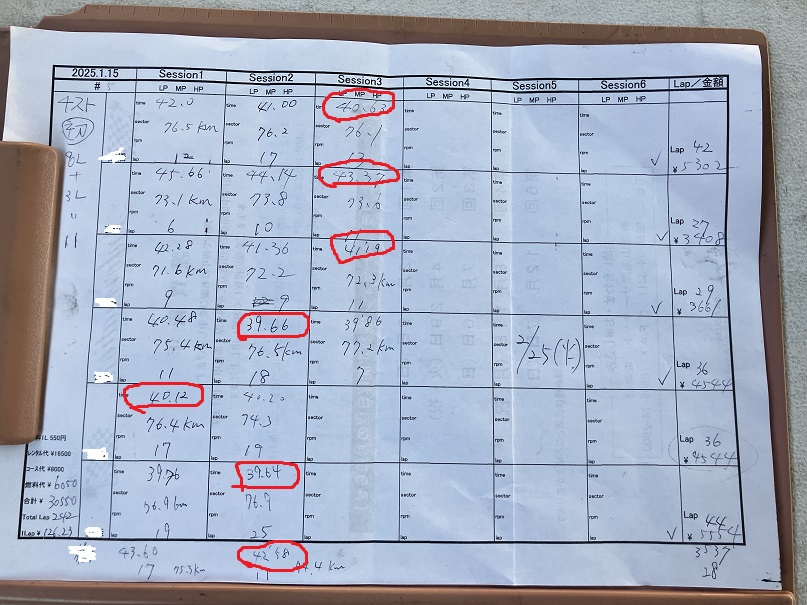 2025.1.15 Session1 Session2 Session3 Session4 Session5 Session6 Lap/金額
# 5 LP MP HP LP MP HP LP MP HP LP MP HP LP MP HP LP MP HP
テスト time 42.0 time 41.00 time 40.63 time time time
sector 76.5km sector 76.2 sector 76.1 sector sector sector
8L rpm rpm rpm rpm rpm rpm Lap 42
+ lap lap 17 lap lap lap lap ¥5302
3L time 45.66 time 44.14 time 43.37 time time time
〃 sector 73.1km sector 73.8 sector sector sector sector
11 rpm rpm rpm rpm rpm rpm Lap 27
lap 6 lap 10 lap lap lap lap ¥3408
time 42.28 time 41.36 time 41.19 time time time
sector 71.6km sector 72.2 sector 72.3km sector sector sector
rpm rpm rpm rpm rpm rpm Lap 29
lap 9 lap 9 lap 11 lap lap lap ¥3661
time 40.48 time 39.66 time 39.86 time time time
sector 75.4km sector 76.5km sector 77.2km sector sector 2/25 sector
rpm rpm rpm rpm rpm rpm Lap 36
lap 11 lap 18 lap 7 lap lap lap ¥4544
time 40.12 time 40.20 time time time time
sector 76.4km sector 74.3 sector sector sector sector
rpm rpm rpm rpm rpm rpm Lap 36
lap 17 lap 19 lap lap lap lap ¥4544
1L 550円
レンタル代 ¥16500
コース代 ¥8000
燃料代 ¥6050
合計 ¥30550
Total Lap 242
1Lap ¥126.23
time 39.76 time 39.64 time time time time
sector 76.9km sector 76.9 sector sector sector sector
rpm rpm rpm rpm rpm rpm Lap 44
lap 19 lap 25 lap lap lap lap ¥5554
43.60 42.48 3537
17 75.3km 28